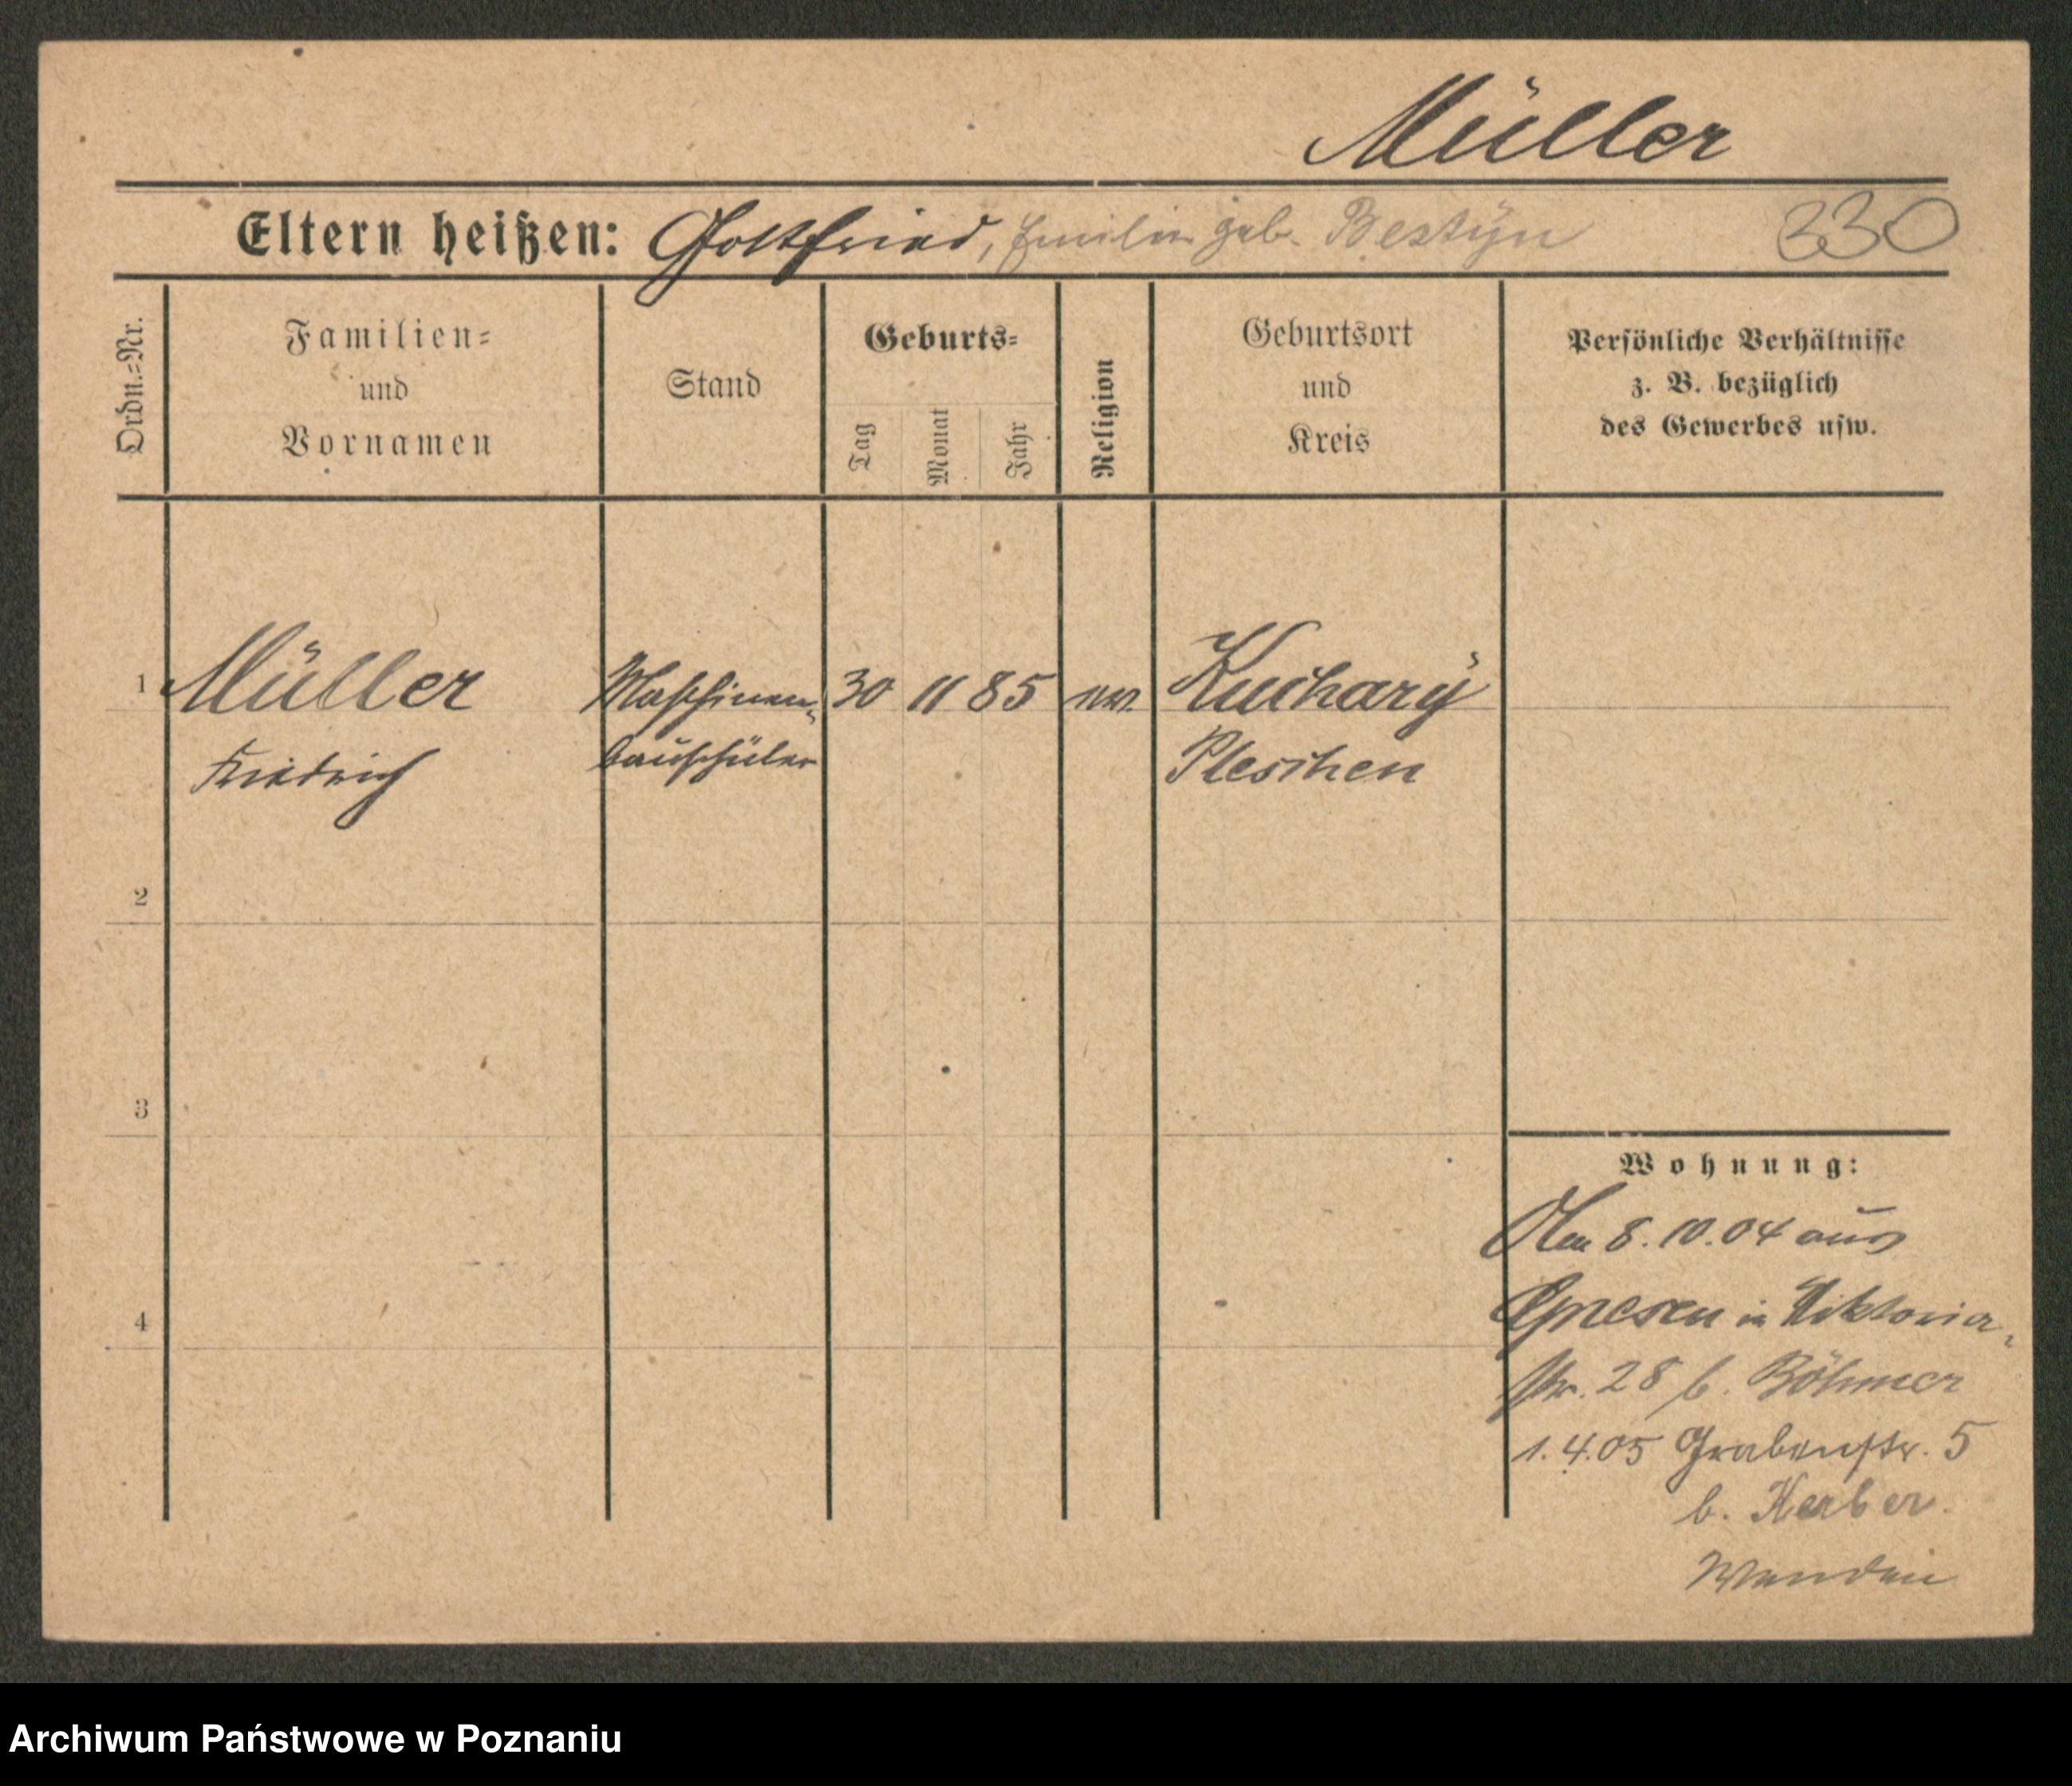 Müller
Eltern heißen: Gottfried, Emilie geb. Bestÿn 330
Ordn.-Nr.
Familien-
und
Vornamen
Stand
Geburts-
Tag
Monat
Jahr
Religion
Geburtsort
und
Kreis
Persönliche Verhältnisse
z. B. bezüglich
des Gewerbes usw.
1 Müller Maschinen- 30 11 85 ev. Kucharÿ
Friedrich bauschüler Pleschen
2
3
4
Wohnung:
Am 8.10.04 aus
Gnesen in Viktoria-
str. 28 b. Böhmer
1.4.05 Grabenstr. 5
b. Kerber.
Wenden
Archiwum Państwowe w Poznaniu